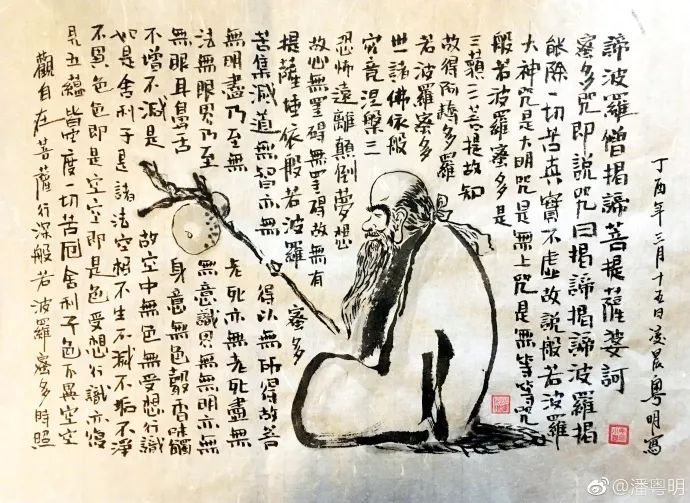 觀自在菩薩行深般若波羅蜜多時照
見五蘊皆空度一切苦厄舍利子色不異空空
不異色色即是空空即是色受想行識亦復
如是舍利子是諸法空相不生不滅不垢不淨
不增不減是
故空中無色無受想行識
無眼耳鼻舌
身意無色聲香味觸
法無眼界乃至
無意識界無無明亦無
無明盡乃至無
老死亦無老死盡無
苦集滅道無智亦無
得以無所得故菩
提薩埵依般若波羅
蜜多
故心無罣碍無罣碍故無有
恐怖遠離顛倒夢想
究竟涅槃三
世諸佛依般
若波羅蜜多
故得阿耨多羅
三藐三菩提故知
般若波羅蜜多是
大神咒是大明咒是無上咒是無等等咒
能除一切苦真實不虛故說般若波羅
蜜多咒即說咒曰揭諦揭諦波羅揭
諦波羅僧揭諦菩提薩婆訶
丁酉年三月十五日凌晨粵明寫
@潘粤明